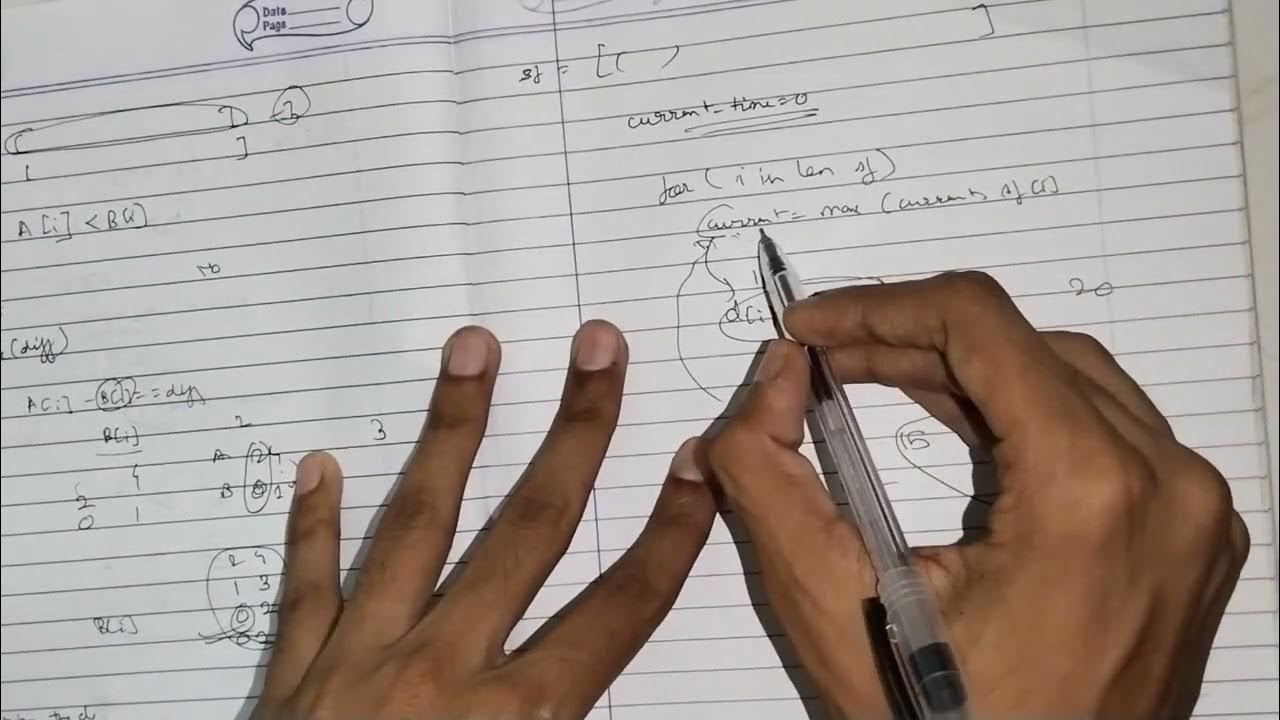 Data
Page
3
A[i] < B(i)
(diff)
A[i] - B[i] = = diff
B[i]
4
2
0 1
2
3
A 2 4
B 0 1
2 4
1 3
0 2
0 2
B[i]
sf = [( ) ]
current-time=0
for ( i in len sf)
current = max (current, sf(i)
d[i
20
15